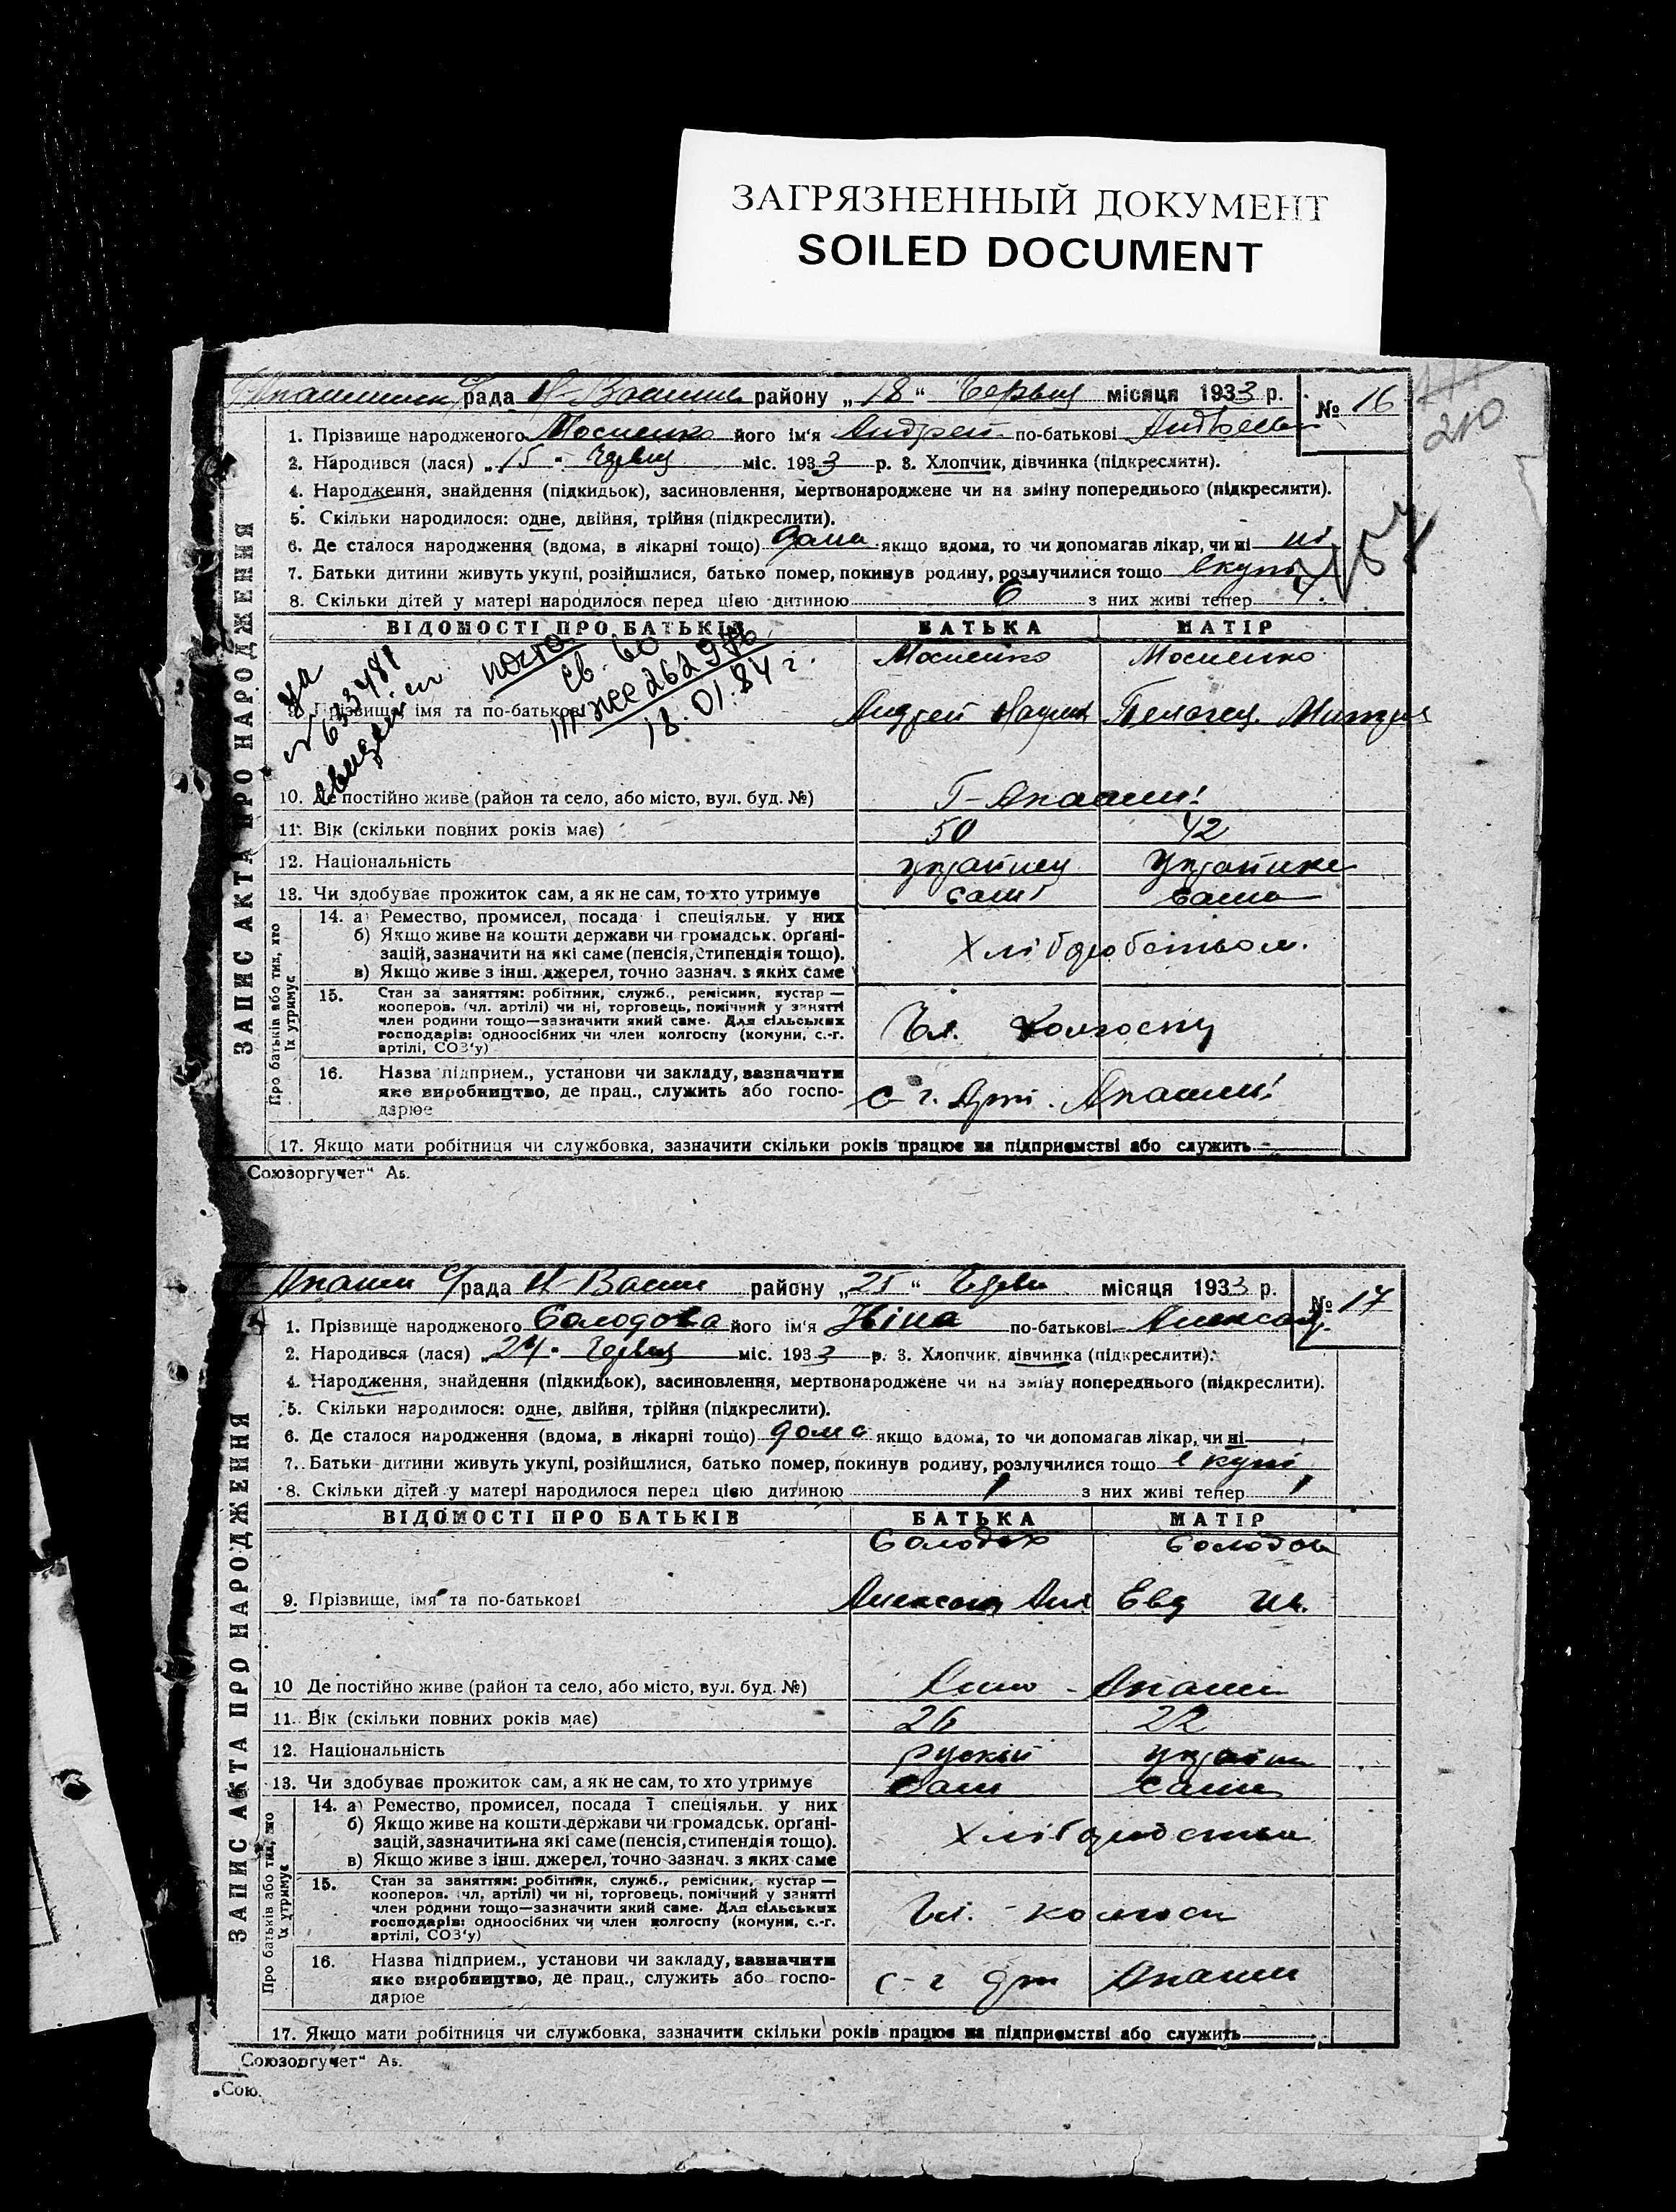 ЗАГРЯЗНЕННЫЙ ДОКУМЕНТ
SOILED DOCUMENT
210
рада Н-Васил району „18“ Червця місяця 1933 р. № 16
1. Прізвище народженого Мосиенко його ім'я Андрей по-батькові
2. Народився (лася) „15“ місяц. 1933 р. 3. Хлопчик, дівчинка (підкреслити).
4. Народження, знайдення (підкидьок), засиновлення, мертвонароджене чи на зміну попереднього (підкреслити).
5. Скільки народилося: одне, двійня, трійня (підкреслити).
6. Де сталося народження (вдома, в лікарні тощо) дома якщо вдома, то чи допомагав лікар, чи ні ні
7. Батьки дитини живуть укупі, розійшлися, батько помер, покинув родину, розлучилися тощо вкупі
8. Скільки дітей у матері народилося перед цією дитиною 6 з них живі тепер 4.
ВІДОМОСТІ ПРО БАТЬКІВ БАТЬКА МАТІР
Мосиенко Мосиенко
18.01.84 г.
9. Прізвище, імя та по-батькові Андрей
10. Де постійно живе (район та село, або місто, вул. буд. №)
11. Вік (скільки повних років має) 50 42
12. Національність
13. Чи здобуває прожиток сам, а як не сам, то хто утримує сам сама
14. а) Ремество, промисел, посада і спеціяльн. у них
б) Якщо живе на кошти держави чи громадськ. організацій, зазначити на які саме (пенсія, стипендія тощо).
в) Якщо живе з інш. джерел, точно зазнач. з яких саме
Хліборобством.
15. Стан за заняттям: робітник, служб., ремісник, кустар—
кооперов. (чл. артілі) чи ні, торговець, помічний у занятті
член родини тощо—зазначити який саме. Для сільських
господарів: одноосібних чи член колгоспу (комуни, с.-г.
артілі, СОЗ'у)
Чл. Колгоспу
16. Назва підприєм., установи чи закладу, зазначити
яке виробництво, де прац., служить або госпо-
дарює
17. Якщо мати робітниця чи службовка, зазначити скільки років працює на підприємстві або служить
ЗАПИС АКТА ПРО НАРОДЖЕННЯ
Про батьків або тих, хто
їх утримує
Союзоргучет“ Аб.
рада Н-Васил району „25“ місяця 1933 р. № 17
1. Прізвище народженого Солодова його ім'я Ніна по-батькові
2. Народився (лася) „24“ міс. 1933 р. 3. Хлопчик, дівчинка (підкреслити).
4. Народження, знайдення (підкидьок), засиновлення, мертвонароджене чи на зміну попереднього (підкреслити).
5. Скільки народилося: одне, двійня, трійня (підкреслити).
6. Де сталося народження (вдома, в лікарні тощо) дома якщо вдома, то чи допомагав лікар, чи ні
7. Батьки дитини живуть укупі, розійшлися, батько помер, покинув родину, розлучилися тощо вкупі
8. Скільки дітей у матері народилося перед цією дитиною 1 з них живі тепер 1
ВІДОМОСТІ ПРО БАТЬКІВ БАТЬКА МАТІР
9. Прізвище, імя та по-батькові Евд Ив.
10 Де постійно живе (район та село, або місто, вул. буд. №)
11. Вік (скільки повних років має) 26 22
12. Національність
13. Чи здобуває прожиток сам, а як не сам, то хто утримує сам сама
14. а) Ремество, промисел, посада і спеціяльн. у них
б) Якщо живе на кошти держави чи громадськ. органі-
зацій, зазначити на які саме (пенсія, стипендія тощо).
в) Якщо живе з інш. джерел, точно зазнач. з яких саме
15. Стан за заняттям: робітник, служб., ремісник, кустар—
кооперов. (чл. артілі) чи ні, торговець, помічний у занятті
член родини тощо—зазначити який саме. Для сільських
господарів: одноосібних чи член колгоспу (комуни, с.-г.
артілі, СОЗ'у)
16. Назва підприєм., установи чи закладу, зазначити
яке виробництво, де прац., служить або госпо-
дарює
17. Якщо мати робітниця чи службовка, зазначити скільки років працює на підприємстві або служить
ЗАПИС АКТА ПРО НАРОДЖЕННЯ
Про батьків або тих, хто
їх утримує
Союзоргучет“ Аб.
„Сою